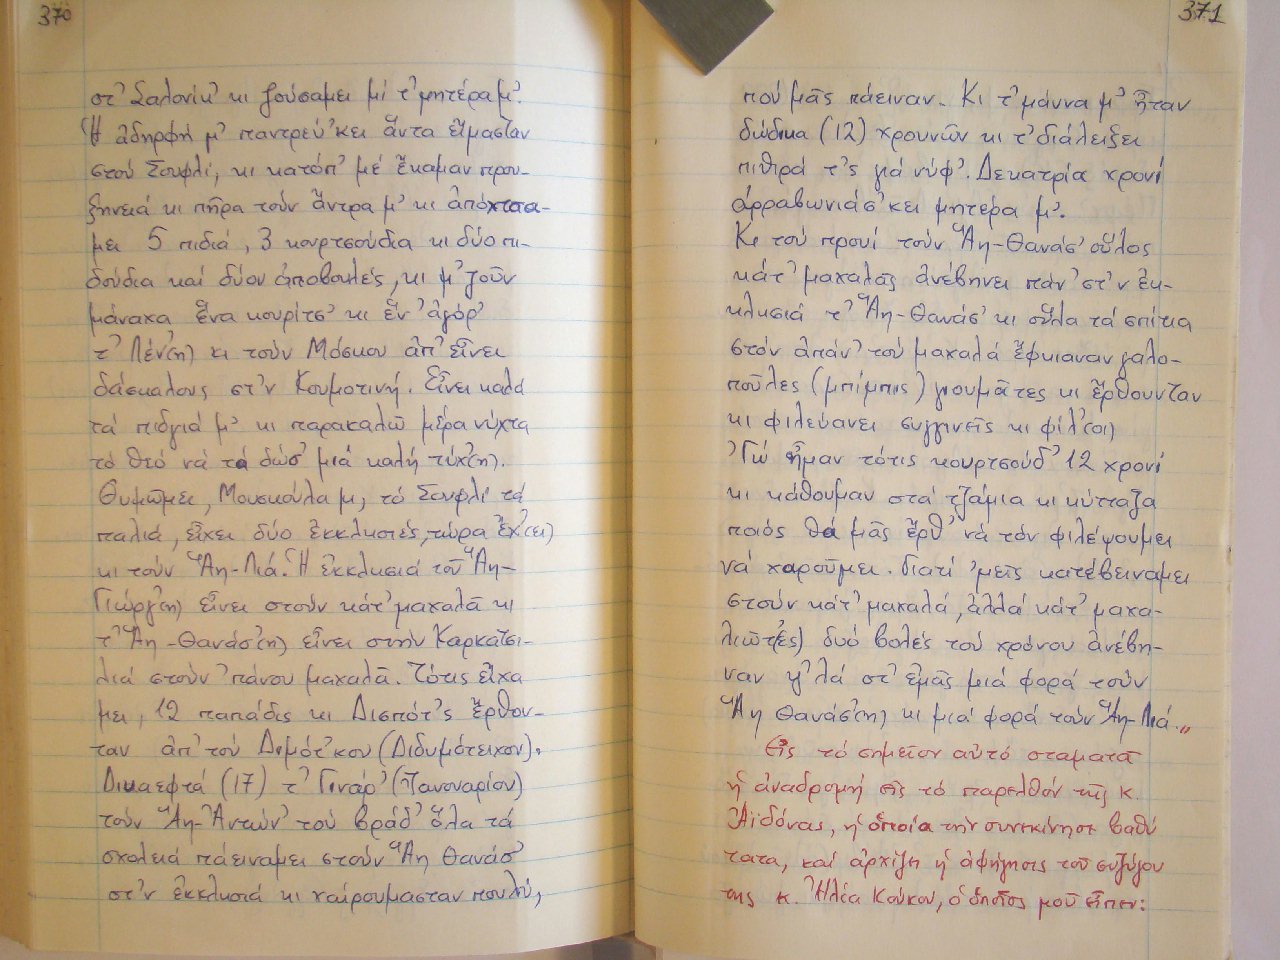 370
στ' Σαλονίκ' κι ζούσαμει μί τ' μητέρα μ'.
Ἡ ἀδηρφή μ' παντρεύ'κει ἄντα εἴμασταν
στού Σουφλί, κι κατόπ' μέ ἔκαμαν πρου-
ξηνειά κι πῆρα τούν ἄντρα μ' κι ἀπόχτσα-
μει 5 πιδιά, 3 κουρτσούδια κι δύο πι-
δούδια καί δύου ἀποβουλές, κι μ' ζοῦν
μάναχα ἕνα κουρίτσ' κι ἕν' ἀγόρ'
τ' Λέν(η) κι τούν Μόσκου ἀπ' εἶνει
δάσκαλους στ'ν Κουμοτινή. Εἶνει καλά
τά πιδγιά μ' κι παρακαλῶ μέρα νύχτα
τό Θιό νά τά δώσ' μιά καλή τύχ(η).
Θυμῶμει, Μουσκούλα μ, τό Σουφλί τά
παλιά, εἶχει δύο ἐκκλησιές, τώρα ἔχ(ει)
κι τούν Ἅη-Λιά. Ἡ ἐκκλησιά τοῦ Ἅη-
Γιώργ(η) εἶνει στούν κάτ' μαχαλᾶ κι
τ' Ἅη-Θανάσ(η) εἶνει στήν Καρκατσι-
λιά στούν 'πάνου μαχαλᾶ. Τότις εἶχα
μει, 12 παπάδις κι Δισπότ'ς ἔρθον-
ταν ἀπ' τού Διμότ'κου (Διδυμότειχον).
Δικαεφτά (17) τ' Γινάρ' (Ἰανουαρίου)
τούν Ἅη-Ἀντών' τού βράδ' ὅλα τά
σχολειά πάειναμει στούν Ἅη Θανάσ'
στ'ν ἐκκλησιά κι χαίρουμασταν πουλύ,
371
πού μᾶς πάειναν. Κι τ' μάννα μ' ἦταν
δώδικα (12) χρουνῶν κι τ' διάλειξει
πιθιρά τ'ς γιά νύφ'. Δεκατρία χρονί
ἀρραβωνιάσ'κει μητέρα μ'.
Κι τού προυί τούν Ἅη-Θανάσ' οὗλος
κάτ' μαχαλᾶς ἀνέβηνει πάν' στ'ν ἐκ-
κλησιά τ' Ἅη-Θανάσ' κι οὗλα τά σπίτια
στόν ἀπάν' τού μαχαλά ἔφκιαναν γαλο-
ποῦλες (μπίμπις) γιουμᾶτες κι ἔρθουνταν
κι φιλεύανει συγγινεῖς κι φίλ(οι)
Γώ ἤμαν τότις κουρτσούδ' 12 χρονί
κι κάθουμαν στά τζάμια κι κύτταζα
ποιός θά μᾶς ἔρθ' νά τόν φιλέψουμει
νά χαροῦμει. διατί 'μεῖς κατέβειναμει
στούν κάτ' μαχαλά, ἀλλά κάτ' μαχα-
λιῶτ(ες) δυό βολές τού χρόνου ἀνέβη-
ναν ψ'λά στ' ἐμᾶς μιά φορά τούν
Ἅη Θανάσ(η) κι μιά φορά τούν Ἅη-Λιά.„
Εἰς τό σημεῖον αὐτό σταματᾶ
ἡ ἀναδρομή εἰς τό παρελθόν τῆς κ.
Ἀϊδόνας, ἡ ὁποία τήν συνεκίνησε βαθύ
τατα, καί ἀρχίζει ἡ ἀφήγησις τοῦ συζύγου
της κ. Ἠλία Κούκου, ὁ ὁποῖος μοῦ εἶπεν: